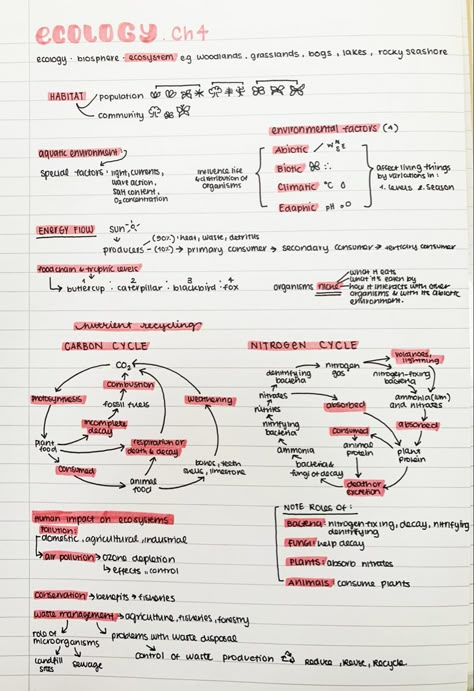 ECOLOGY. Ch4
ecology · biosphere · ecosystem eg woodlands, grasslands, bogs, lakes, rocky seashore
HABITAT
population
community
environmental factors (4)
aquatic environment
special factors: light, currents,
wave action,
salt content,
O₂ concentration
influence life
& distribution of
organisms
Abiotic / N W E S
Biotic
Climatic °C
Edaphic pH
affect living things
by variations in:
1. levels 2. season
ENERGY FLOW
sun
producers (90%) → heat, waste, detritus
(10%) → primary consumer → secondary consumer → tertiary consumer
food chain & trophic levels
1 2 3 4
buttercup · caterpillar · blackbird · fox
organisms niche
what it eats
what it's eaten by
how it interacts with other
organisms & with its abiotic
environment.
nutrient recycling
CARBON CYCLE
CO₂
combustion
photosynthesis
fossil fuels
weathering
incomplete
decay
respiration or
death & decay
plant
food
consumed
animal
food
bones, teeth
shells, limestone
NITROGEN CYCLE
volcanoes,
lightning
denitrifying
bacteria
nitrogen
gas
nitrogen-fixing
bacteria
nitrates
absorbed
ammonia(ium)
and nitrates
nitrites
nitrifying
bacteria
consumed
absorbed
ammonia
animal
protein
plant
protein
bacteria &
fungi of decay
death or
excretion
human impact on ecosystems
pollution:
domestic, agricultural, industrial
air pollution → ozone depletion
effects, control
NOTE ROLES OF:
Bacteria: nitrogen fixing, decay, nitrifying
denitrifying
Fungi: help decay
Plants: absorb nitrates
Animals: consume plants
conservation → benefits → fisheries
waste management → agriculture, fisheries, forestry
role of
microorganisms
problems with waste disposal
landfill
sites
sewage
control of waste production
reduce, reuse, recycle